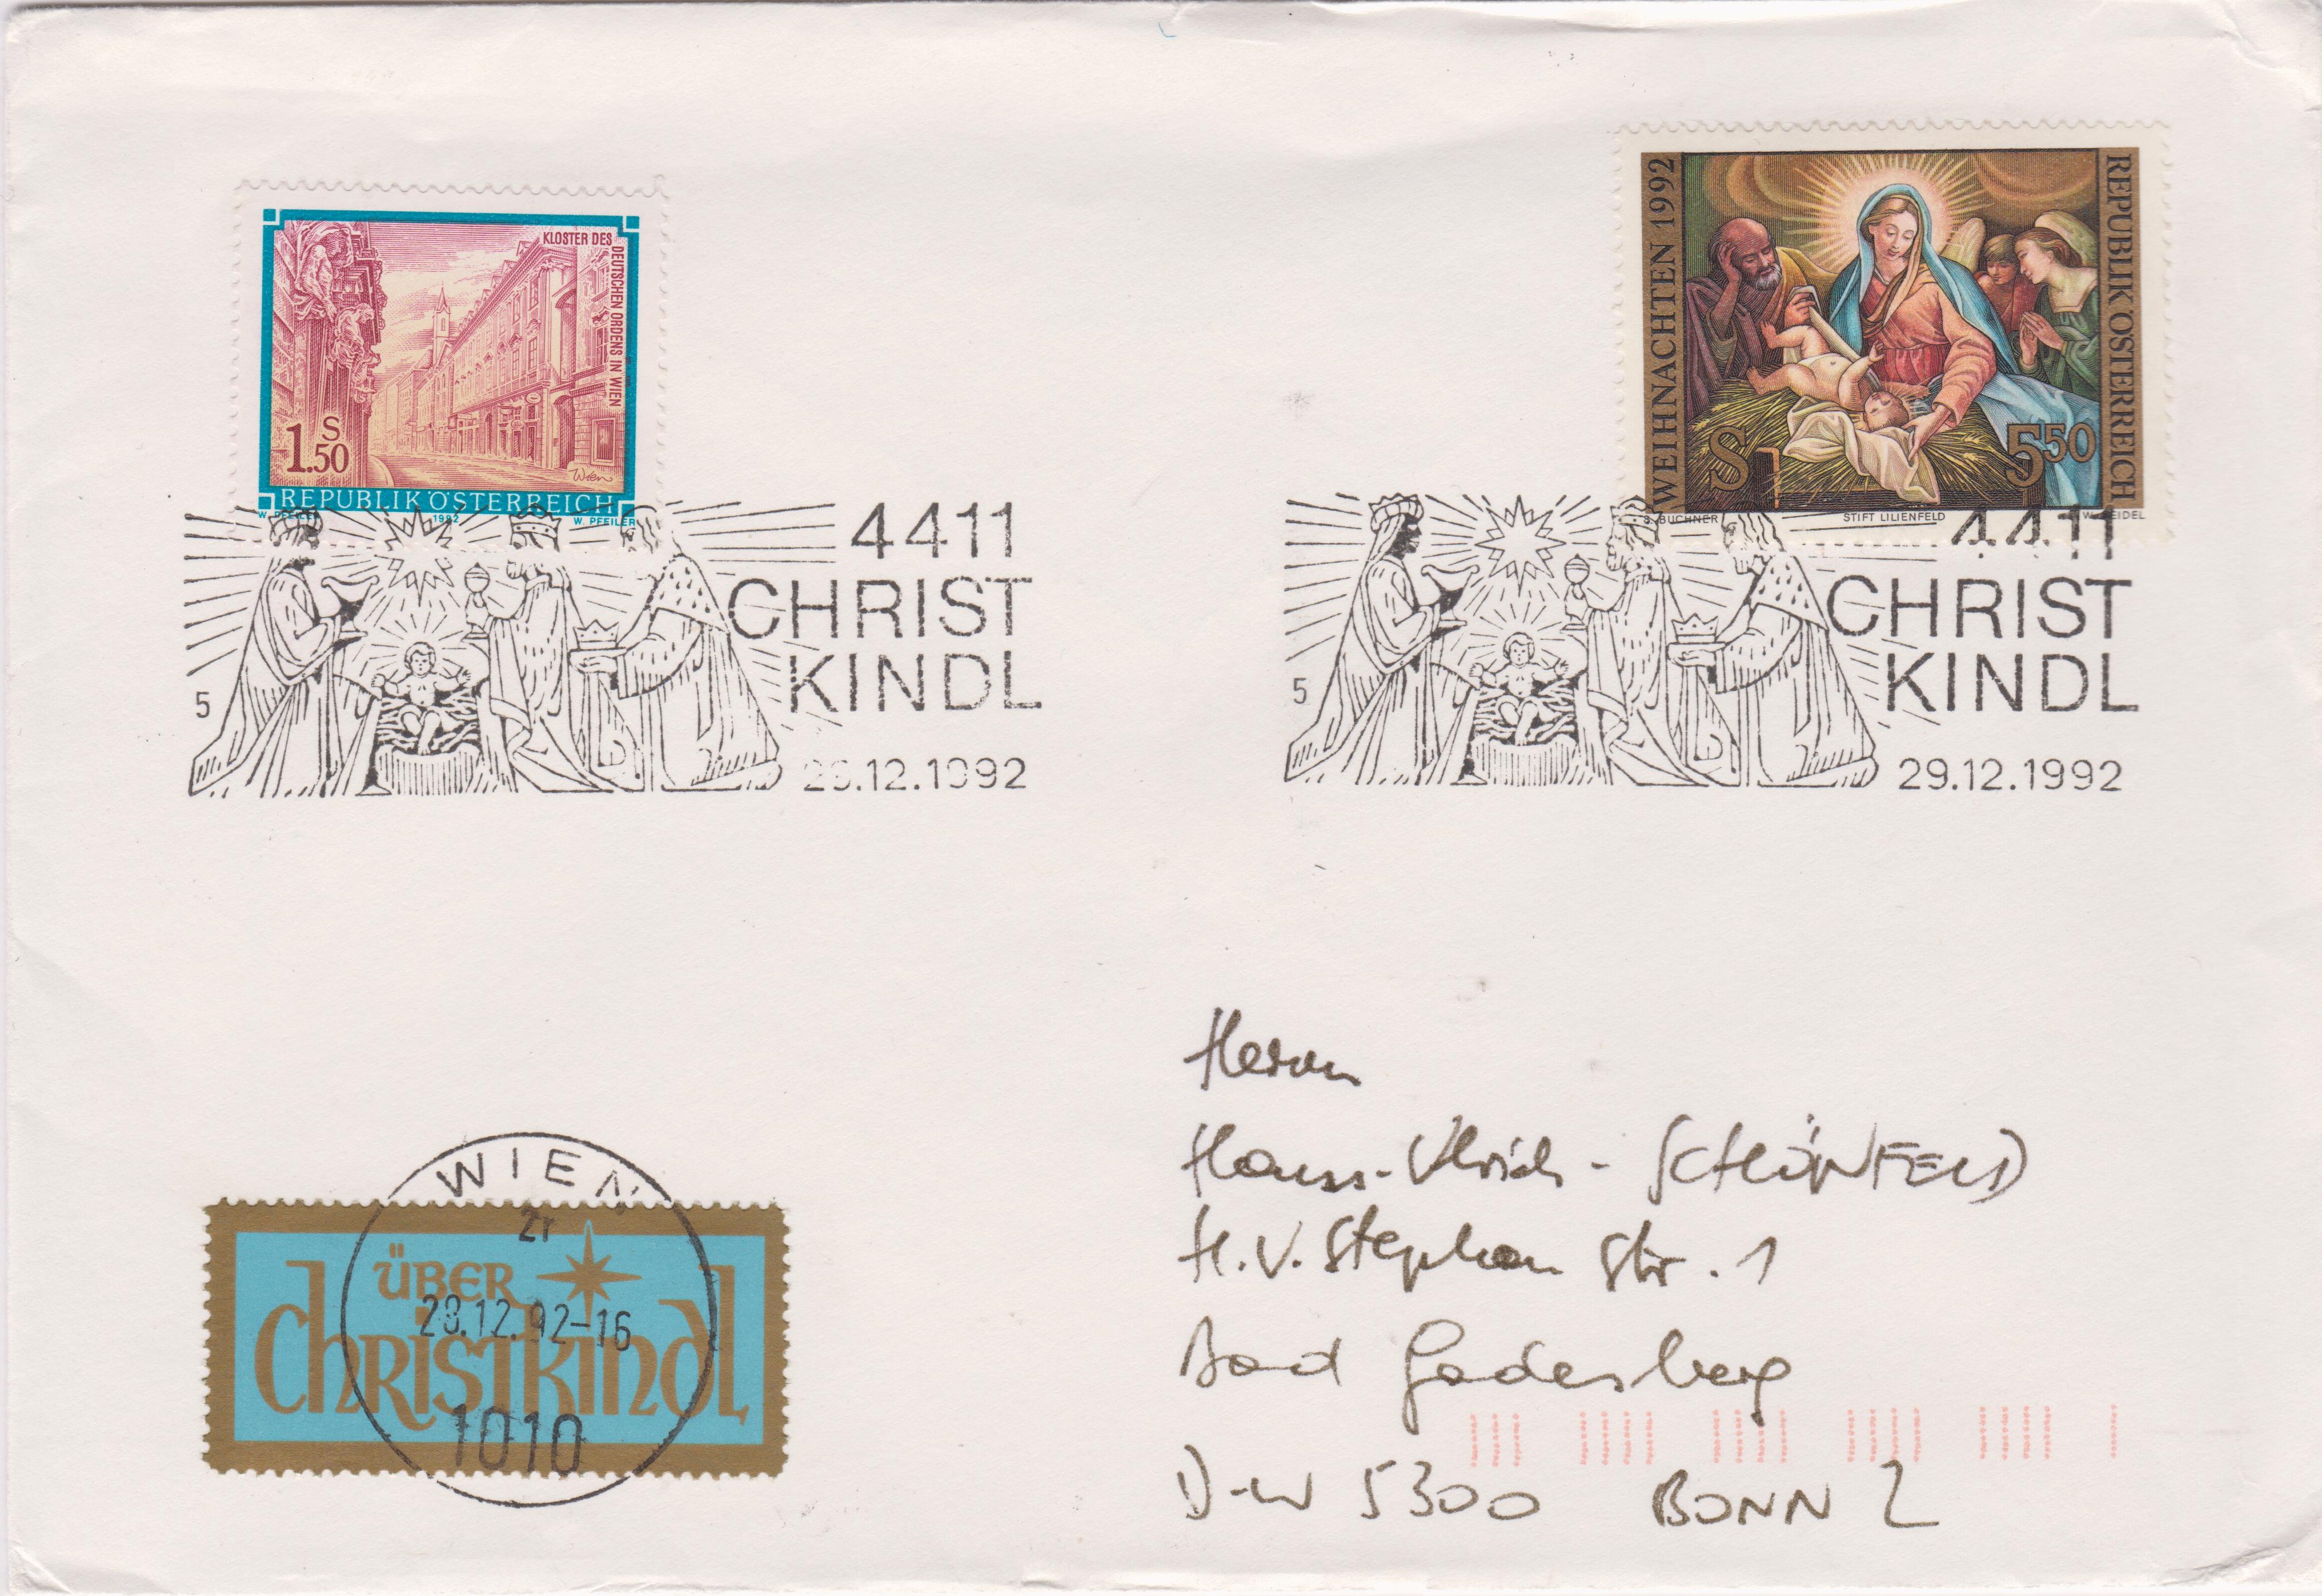 KLOSTER DES
DEUTSCHEN ORDENS IN WIEN
S
1.50
Wien
REPUBLIK ÖSTERREICH
W. PFEILER 1992 W. PFEILER
4411
CHRIST
KINDL
5
29.12.1992
WEIHNACHTEN 1992
REPUBLIK ÖSTERREICH
S 5 50
S. BUCHNER STIFT LILIENFELD W. SEIDEL
4411
CHRIST
KINDL
5
29.12.1992
WIEN
ÜBER
28.12.92-16
Christkindl
1010
Herrn
Hans-Ulrich - SCHÖNFELD
H.v. Stephan Str. 1
Bad Godesberg
D-W 5300 BONN 2